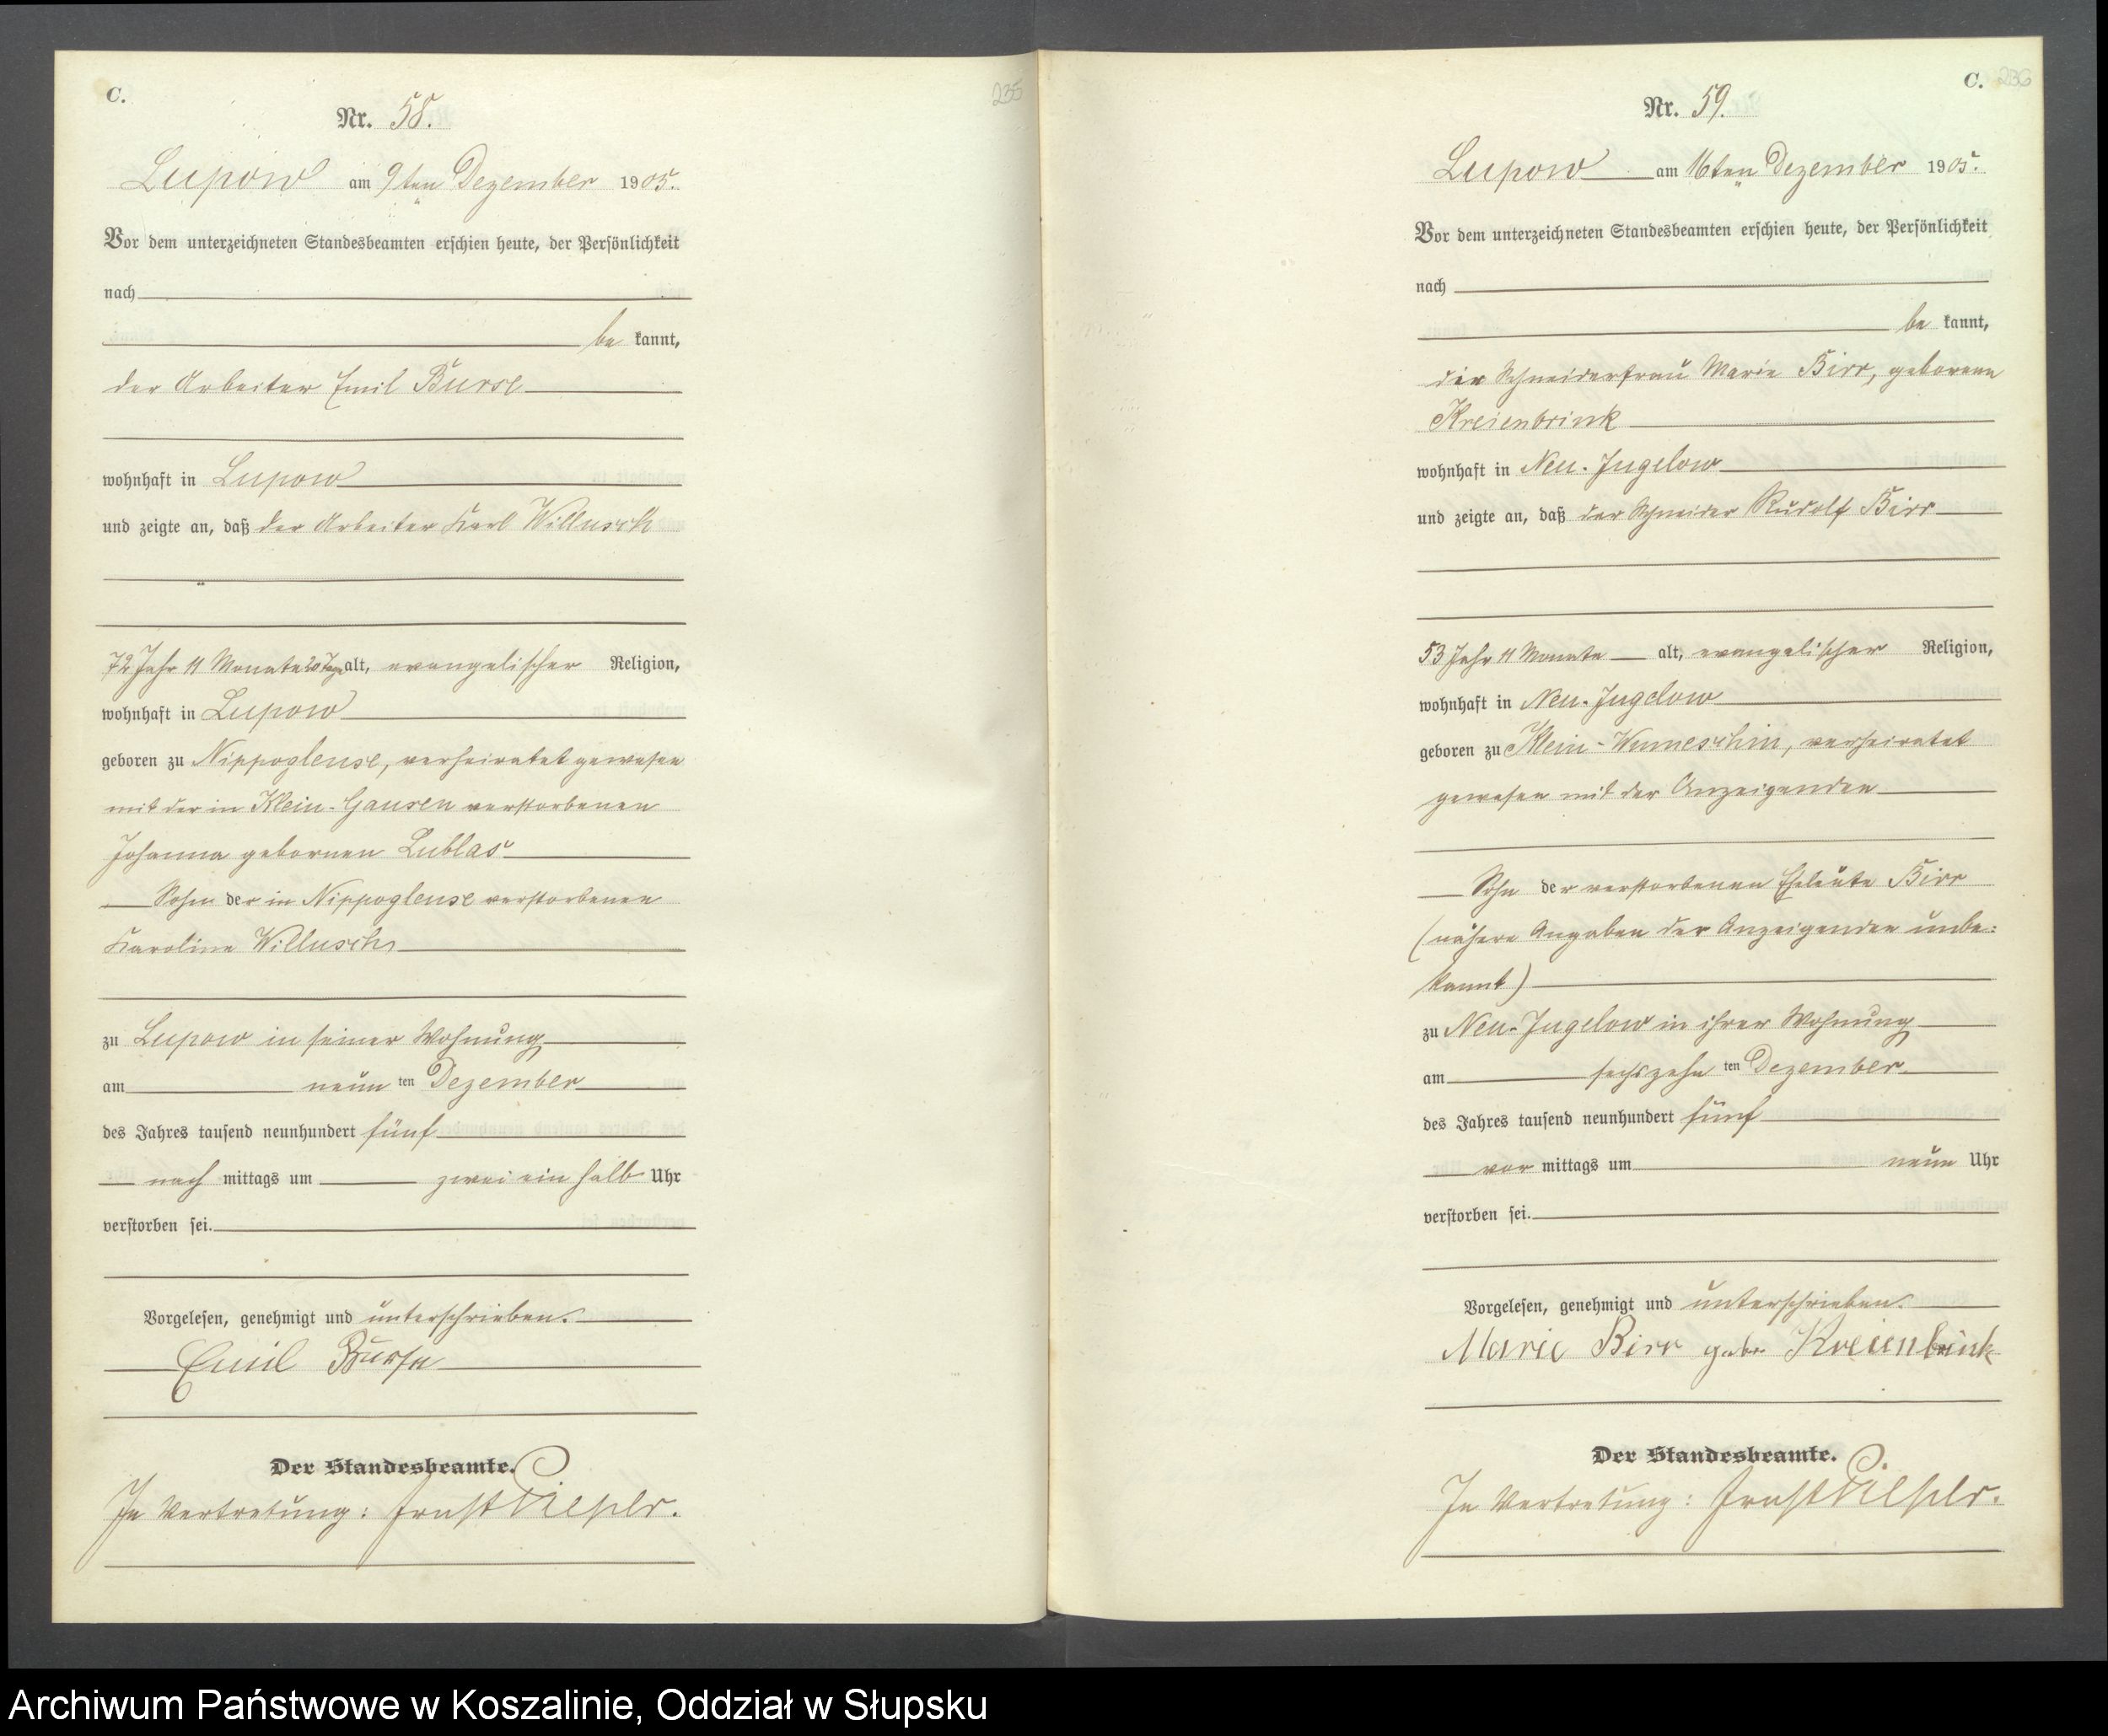 C.
235
Nr. 58.
Lupow am 9ten Dezember 1905.
Vor dem unterzeichneten Standesbeamten erschien heute, der Persönlichkeit
nach
be kannt,
der Arbeiter Emil Burse
wohnhaft in Lupow
und zeigte an, daß der Arbeiter Karl Willusch
72 Jahr 11 Monate 20 Tage alt, evangelischer Religion,
wohnhaft in Lupow
geboren zu Nippoglense, verheiratet gewesen
mit der in Klein-Gansen verstorbenen
Johanna gebornen Lublas
Sohn der in Nippoglense verstorbenen
Karoline Willusch
zu Lupow in seiner Wohnung
am neun ten Dezember
des Jahres tausend neunhundert fünf
nach mittags um zwei ein halb Uhr
verstorben sei.
Vorgelesen, genehmigt und unterschrieben.
Emil Burse
Der Standesbeamte.
In Vertretung: Ernst
C. 236
Nr. 59.
Lupow am 16ten Dezember 1905.
Vor dem unterzeichneten Standesbeamten erschien heute, der Persönlichkeit
nach
be kannt,
die Schneiderfrau Marie Birr, geborene
Kreienbrink
wohnhaft in Neu-Jugelow
und zeigte an, daß der Schneider Rudolf Birr
53 Jahr 11 Monate alt, evangelischer Religion,
wohnhaft in Neu-Jugelow
geboren zu Klein-Wunneschin, verheiratet
gewesen mit der Anzeigenden
Sohn der verstorbenen Eheleute Birr
(nähere Angaben der Anzeigenden unbe:
kannt)
zu Neu-Jugelow in ihrer Wohnung
am sechszehn ten Dezember
des Jahres tausend neunhundert fünf
vor mittags um neun Uhr
verstorben sei.
Vorgelesen, genehmigt und unterschrieben.
Marie Birr geb. Kreienbrink
Der Standesbeamte.
In Vertretung: Ernst
Archiwum Państwowe w Koszalinie, Oddział w Słupsku